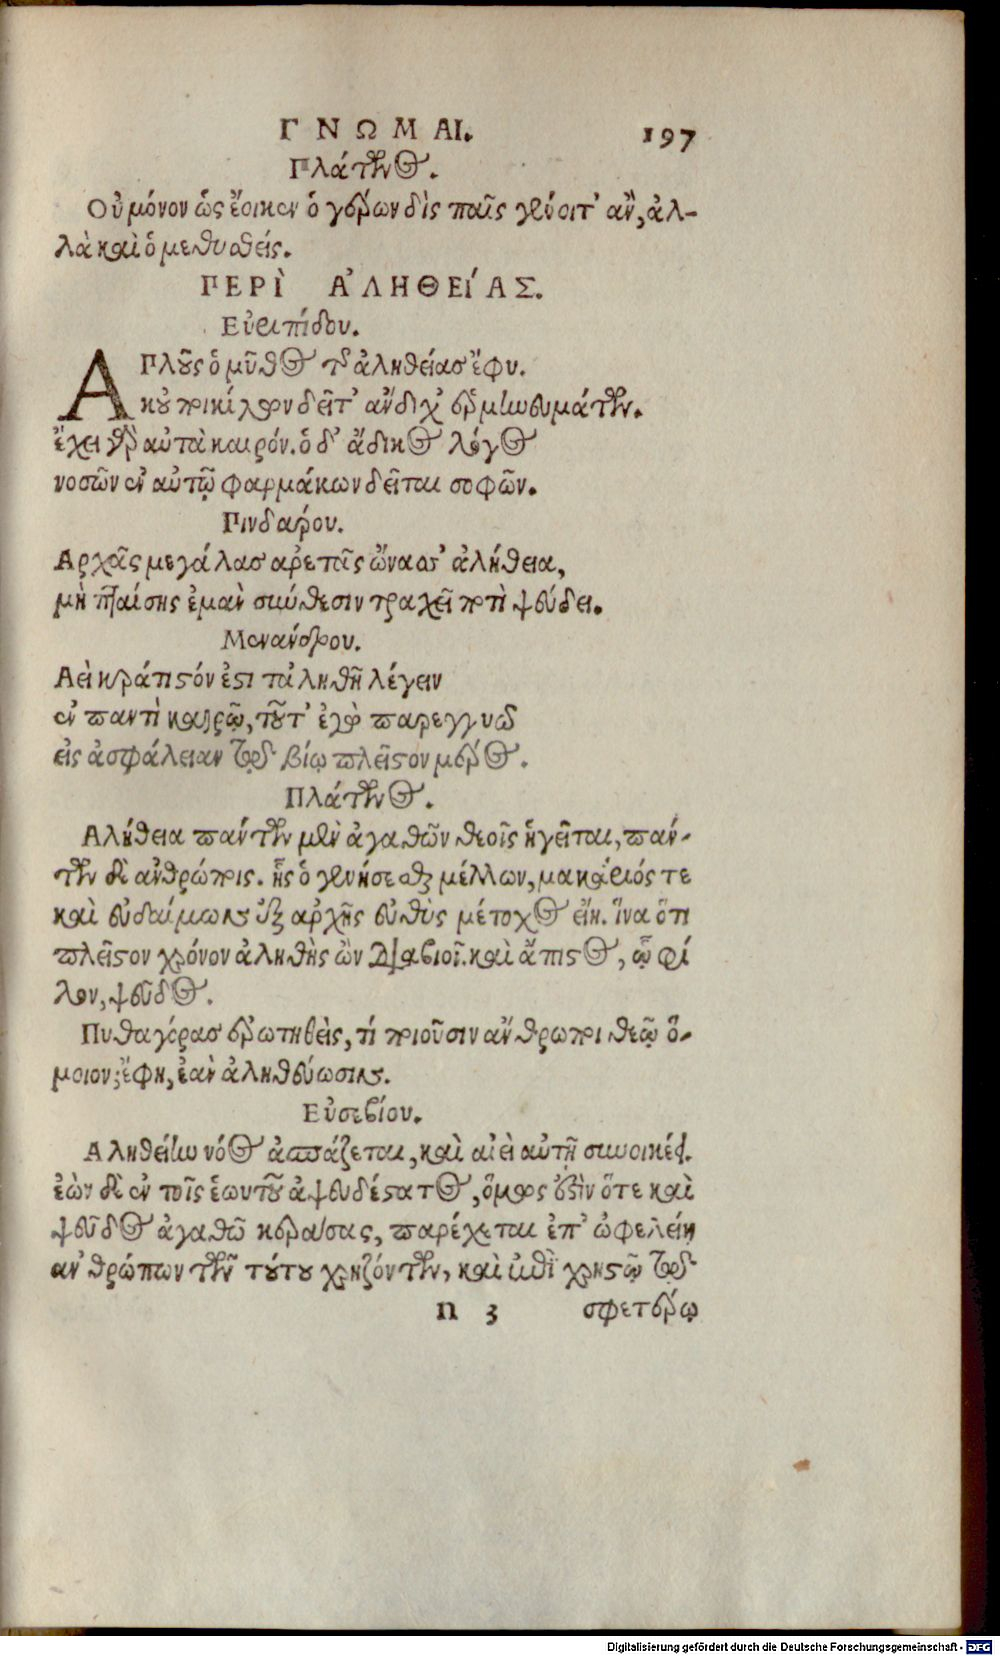 ΓΝΩΜΑΙ. 197
Πλάτωνος.
Οὐ μόνον ὡς ἔοικεν ὁ γέρων δὶς παῖς γένοιτ' ἄν, ἀλ-
λὰ καὶ ὁ μεθυσθείς.
ΠΕΡῚ ἈΛΗΘΕΊΑΣ.
Εὐριπίδου.
ΑΠλοῦς ὁ μῦθος τῆς ἀληθείας ἔφυ.
κοὐ ποικίλων δεῖτ' ἄνδιχ' ἑρμηνευμάτων.
ἔχει γὰρ αὐτὰ καιρόν. ὁ δ' ἄδικος λόγος
νοσῶν ἐν αὐτῷ φαρμάκων δεῖται σοφῶν.
Πινδάρου.
Αρχᾶς μεγάλας ἀρετᾶς ὤνασσ' ἀλήθεια,
μὴ πταίσῃς ἐμὰν σύνθεσιν τραχεῖ ποτὶ ψεύδει.
Μενάνδρου.
Αεὶ κράτιστόν ἐστι τἀληθῆ λέγειν
ἐν παντὶ καιρῷ, τοῦτ' ἐγὼ παρεγγυῶ
εἰς ἀσφάλειαν τῷ βίῳ πλεῖστον μέρος.
Πλάτωνος.
Αλήθεια πάντων μὲν ἀγαθῶν θεοῖς ἡγεῖται, πάν-
των δὲ ἀνθρώποις. ἧς ὁ γενήσεσθαι μέλλων, μακάριός τε
καὶ εὐδαίμων ἐξ ἀρχῆς εὐθὺς μέτοχος εἴη. ἵνα ὅτι
πλεῖστον χρόνον ἀληθὴς ὢν διαβιοῖ. καὶ ἄπιστος, ᾧ φί
λον, ψεῦδος.
Πυθαγόρας ἐρωτηθεὶς, τί ποιοῦσιν ἄνθρωποι θεῷ ὅ-
μοιον; ἔφη, ἐὰν ἀληθεύωσιν.
Εὐσεβίου.
Αληθείην νόος ἀσπάζεται, καὶ αἰεὶ αὐτῇ συνοικέει.
ἐὼν δὲ ἐν τοῖς ἑωυτοῦ ἀψευδέστατος, ὅμως ἔστιν ὅτε καὶ
ψεῦδος ἀγαθῷ κεράσας, παρέχεται ἐπ' ὠφελείῃ
ἀνθρώπων τῶν τούτου χρηζόντων, καὶ ἐπὶ χρηστῷ τῷ
n 3 σφετέρῳ
Digitalisierung gefördert durch die Deutsche Forschungsgemeinschaft - DFG